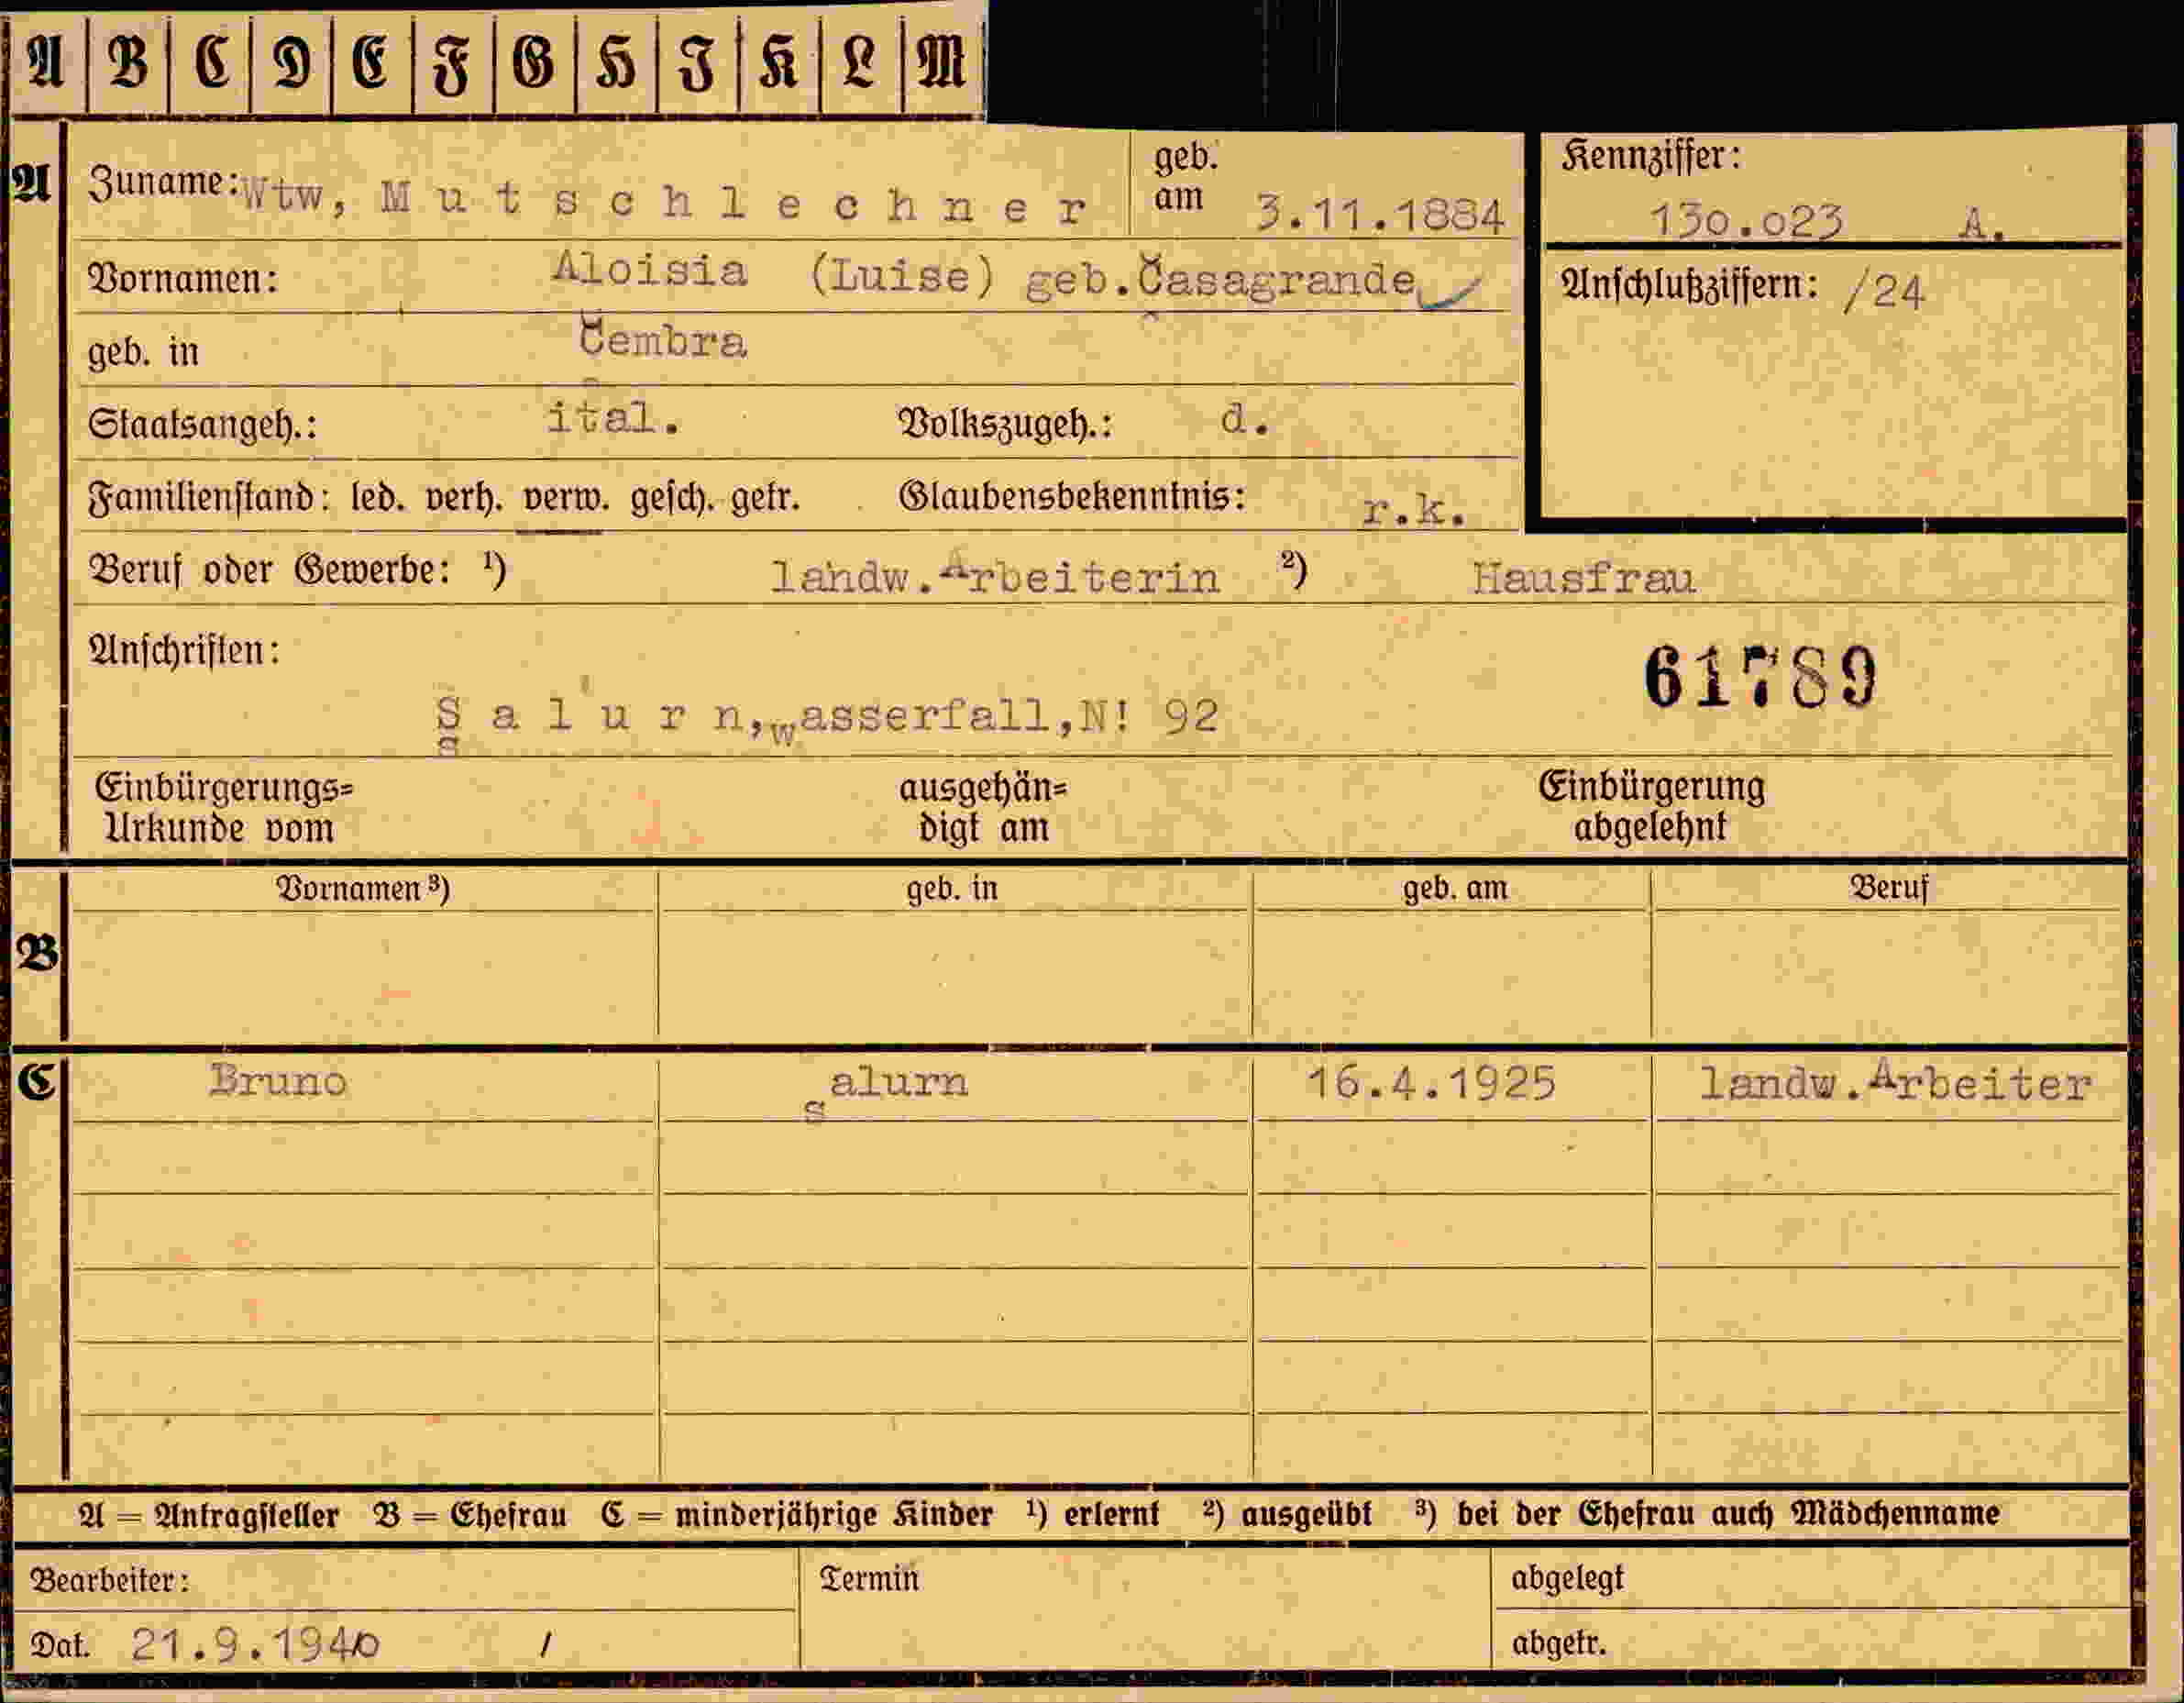 A B C D E F G H I K L M
A Zuname: Wtw, M u t s c h l e c h n e r geb. am 3.11.1884
Kennziffer: 130.023 A.
Vornamen: Aloisia (Luise) geb. Casagrande
Anschlußziffern: /24
geb. in Cembra
Staatsangeh.: ital. Volkszugeh.: d.
Familienstand: led. verh. verw. gesch. getr. Glaubensbekenntnis: r.k.
Beruf oder Gewerbe: 1) landw.Arbeiterin 2) Hausfrau
Anschriften: 61789
S a l u r n, Wasserfall, N! 92
Einbürgerungs= ausgehän= Einbürgerung
Urkunde vom digt am abgelehnt
Vornamen 3) geb. in geb. am Beruf
B
C Bruno Salurn 16.4.1925 landw.Arbeiter
A = Antragsteller B = Ehefrau C = minderjährige Kinder 1) erlernt 2) ausgeübt 3) bei der Ehefrau auch Mädchenname
Bearbeiter: Termin abgelegt
Dat. 21.9.1940 / abgetr.